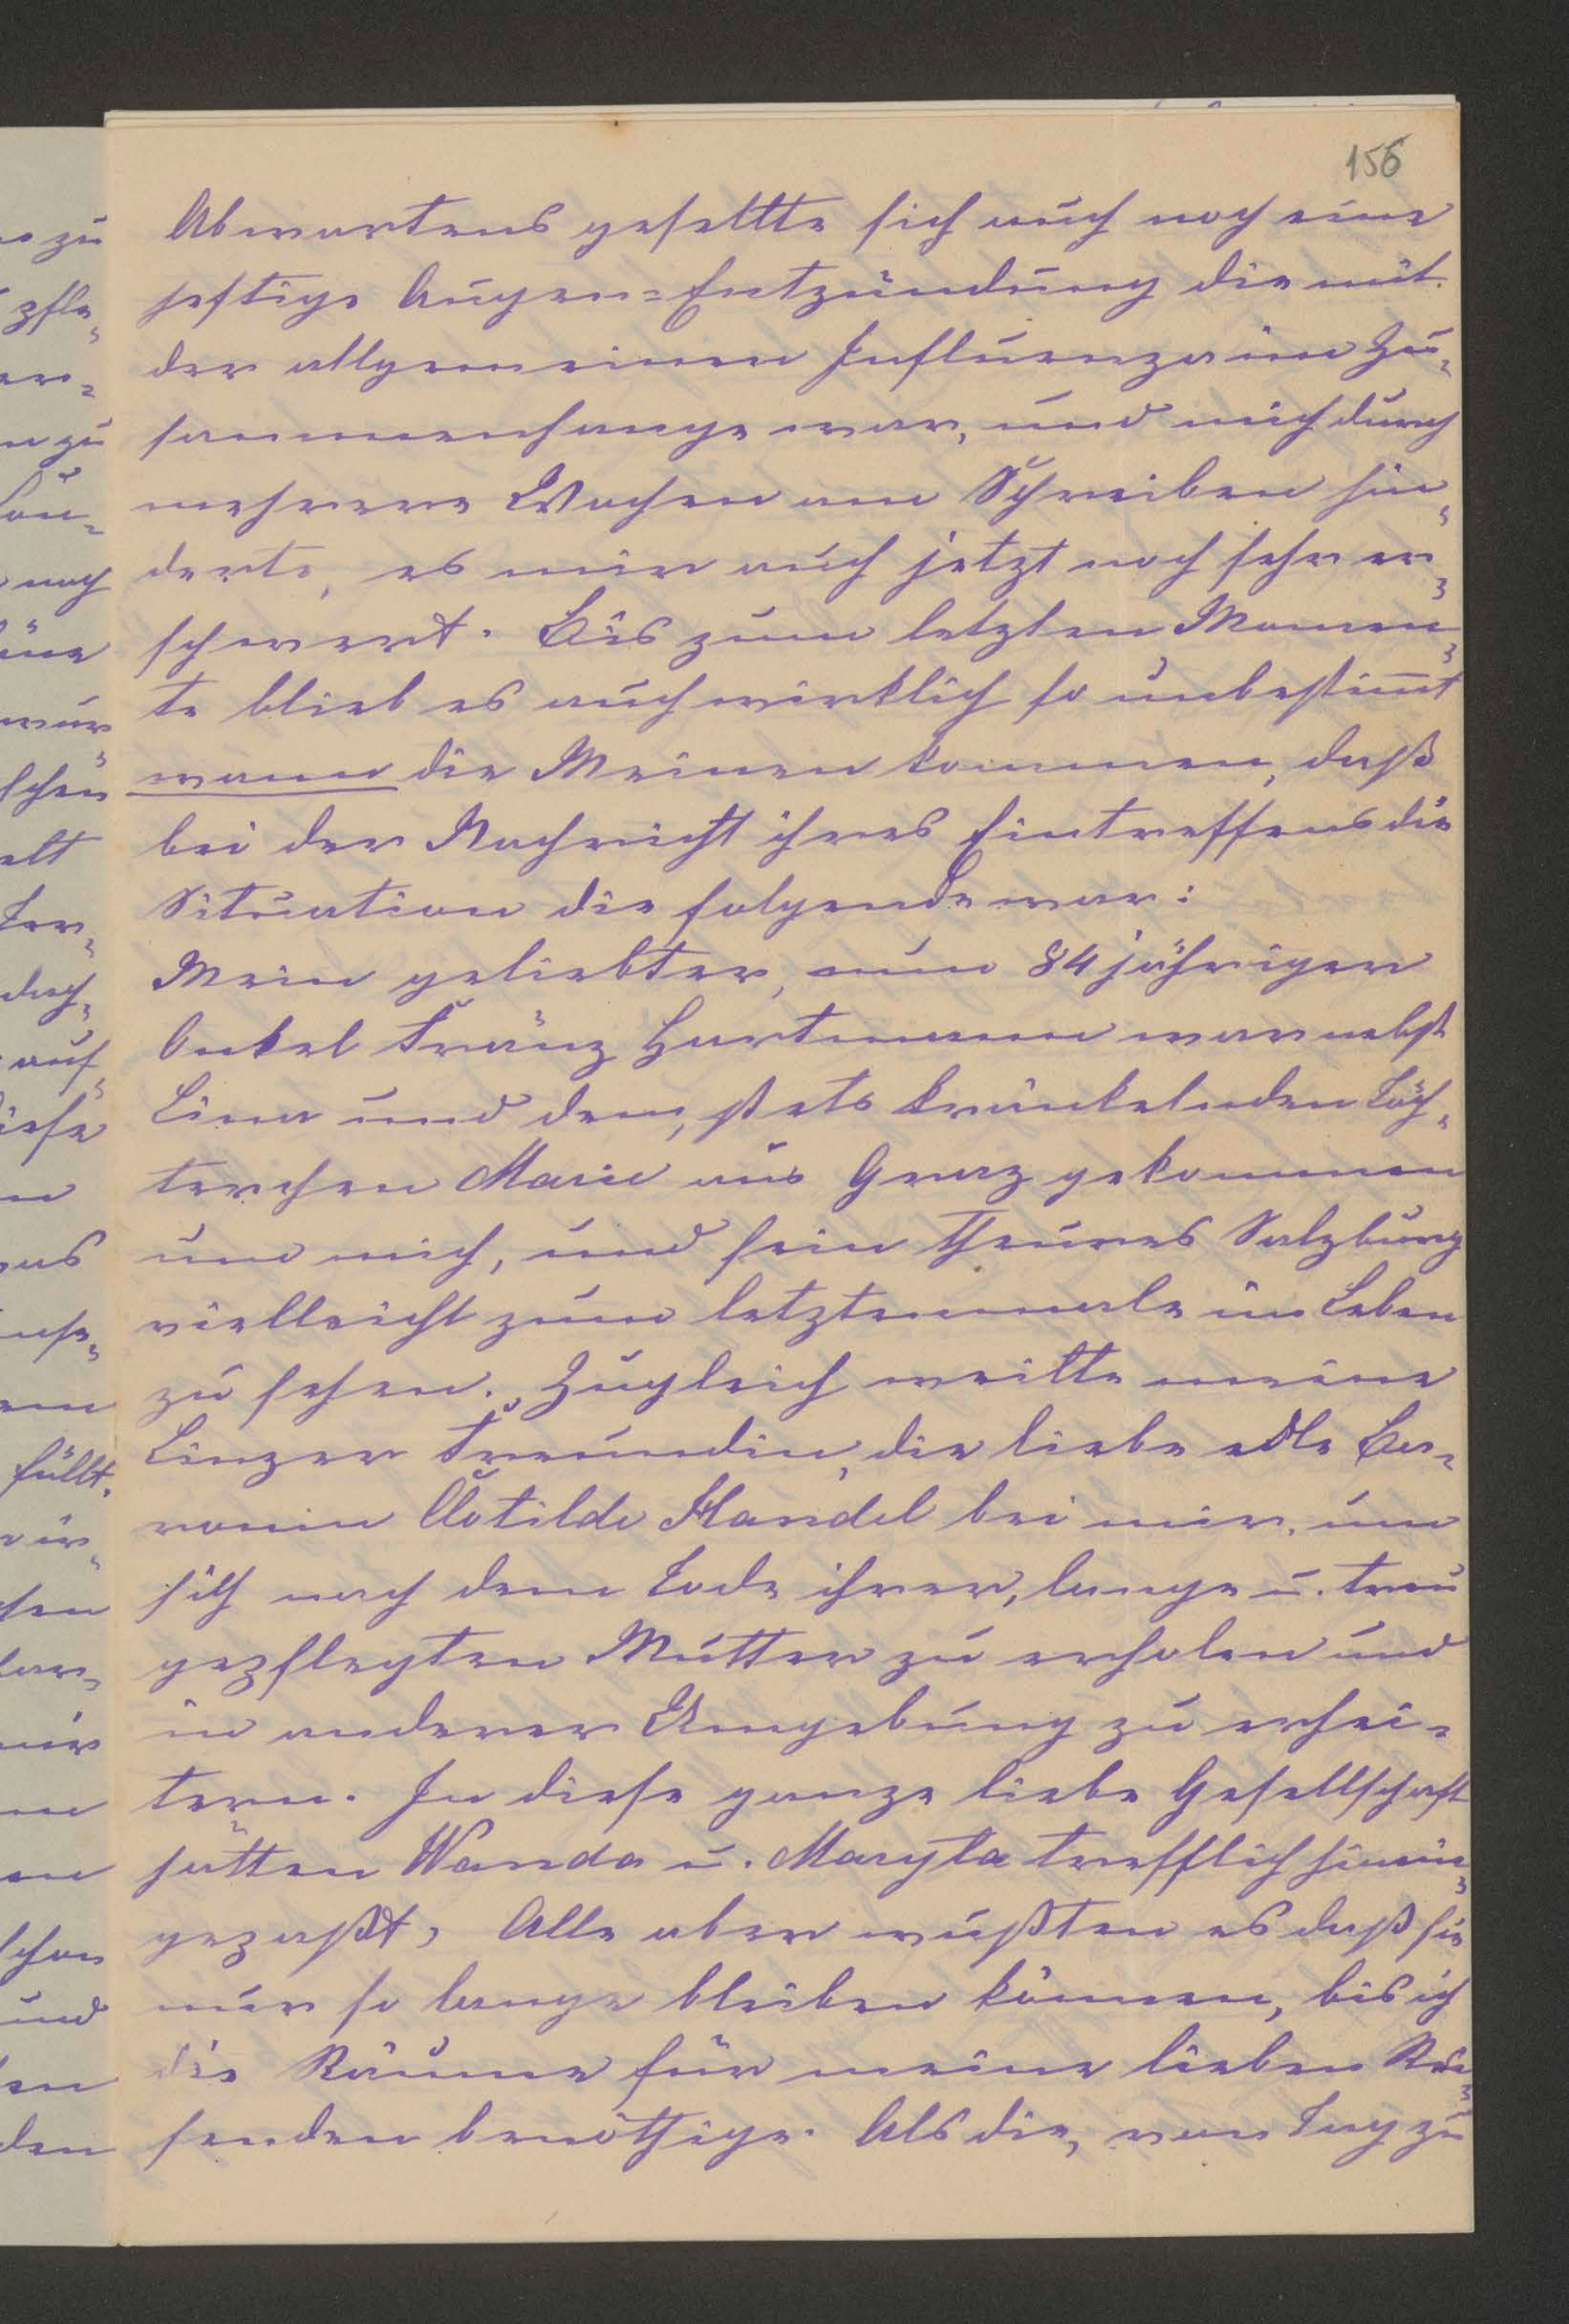 156
Abwartens gesellte sich auch noch eine
heftige Augen=Entzündung die mit
der allgemeinen Influenza im Zu=
sammenhange war, und mich durch
mehrere Wochen am Schreiben hin=
derte, es mir auch jetzt noch sehr er=
schwert. Bis zum letzten Momen=
te blieb es auch wirklich so unbestimt
wann die Meinen kommen, daß
bei der Nachricht ihres Eintreffens die
Situation die folgende war:
Mein geliebter, nun 84 jähriger
Onkel Franz Hartmann war nebst
Lina und dem, stets kränkelnden Töch=
terchen Marie aus Graz gekommen
um mich, und sein theures Salzburg
vielleicht zum letztenmale im Leben
zu sehen. Zugleich weilte meine
Linzer Freundin, die liebe edle Ba=
ronin Clotilde Handel bei mir, um
sich nach dem Tode ihrer, lange u. treu
gepflegten Mutter zu erholen und
in anderer Umgebung zu erhei=
tern. In diese ganze liebe Gesellschaft
hätten Wanda u. Maryla trefflich hinein=
gepaßt, Alle aber wußten es daß sie
nur so lange bleiben können, bis ich
die Räume für meine lieben Rei=
senden benöthige. Als die, von Tag zu